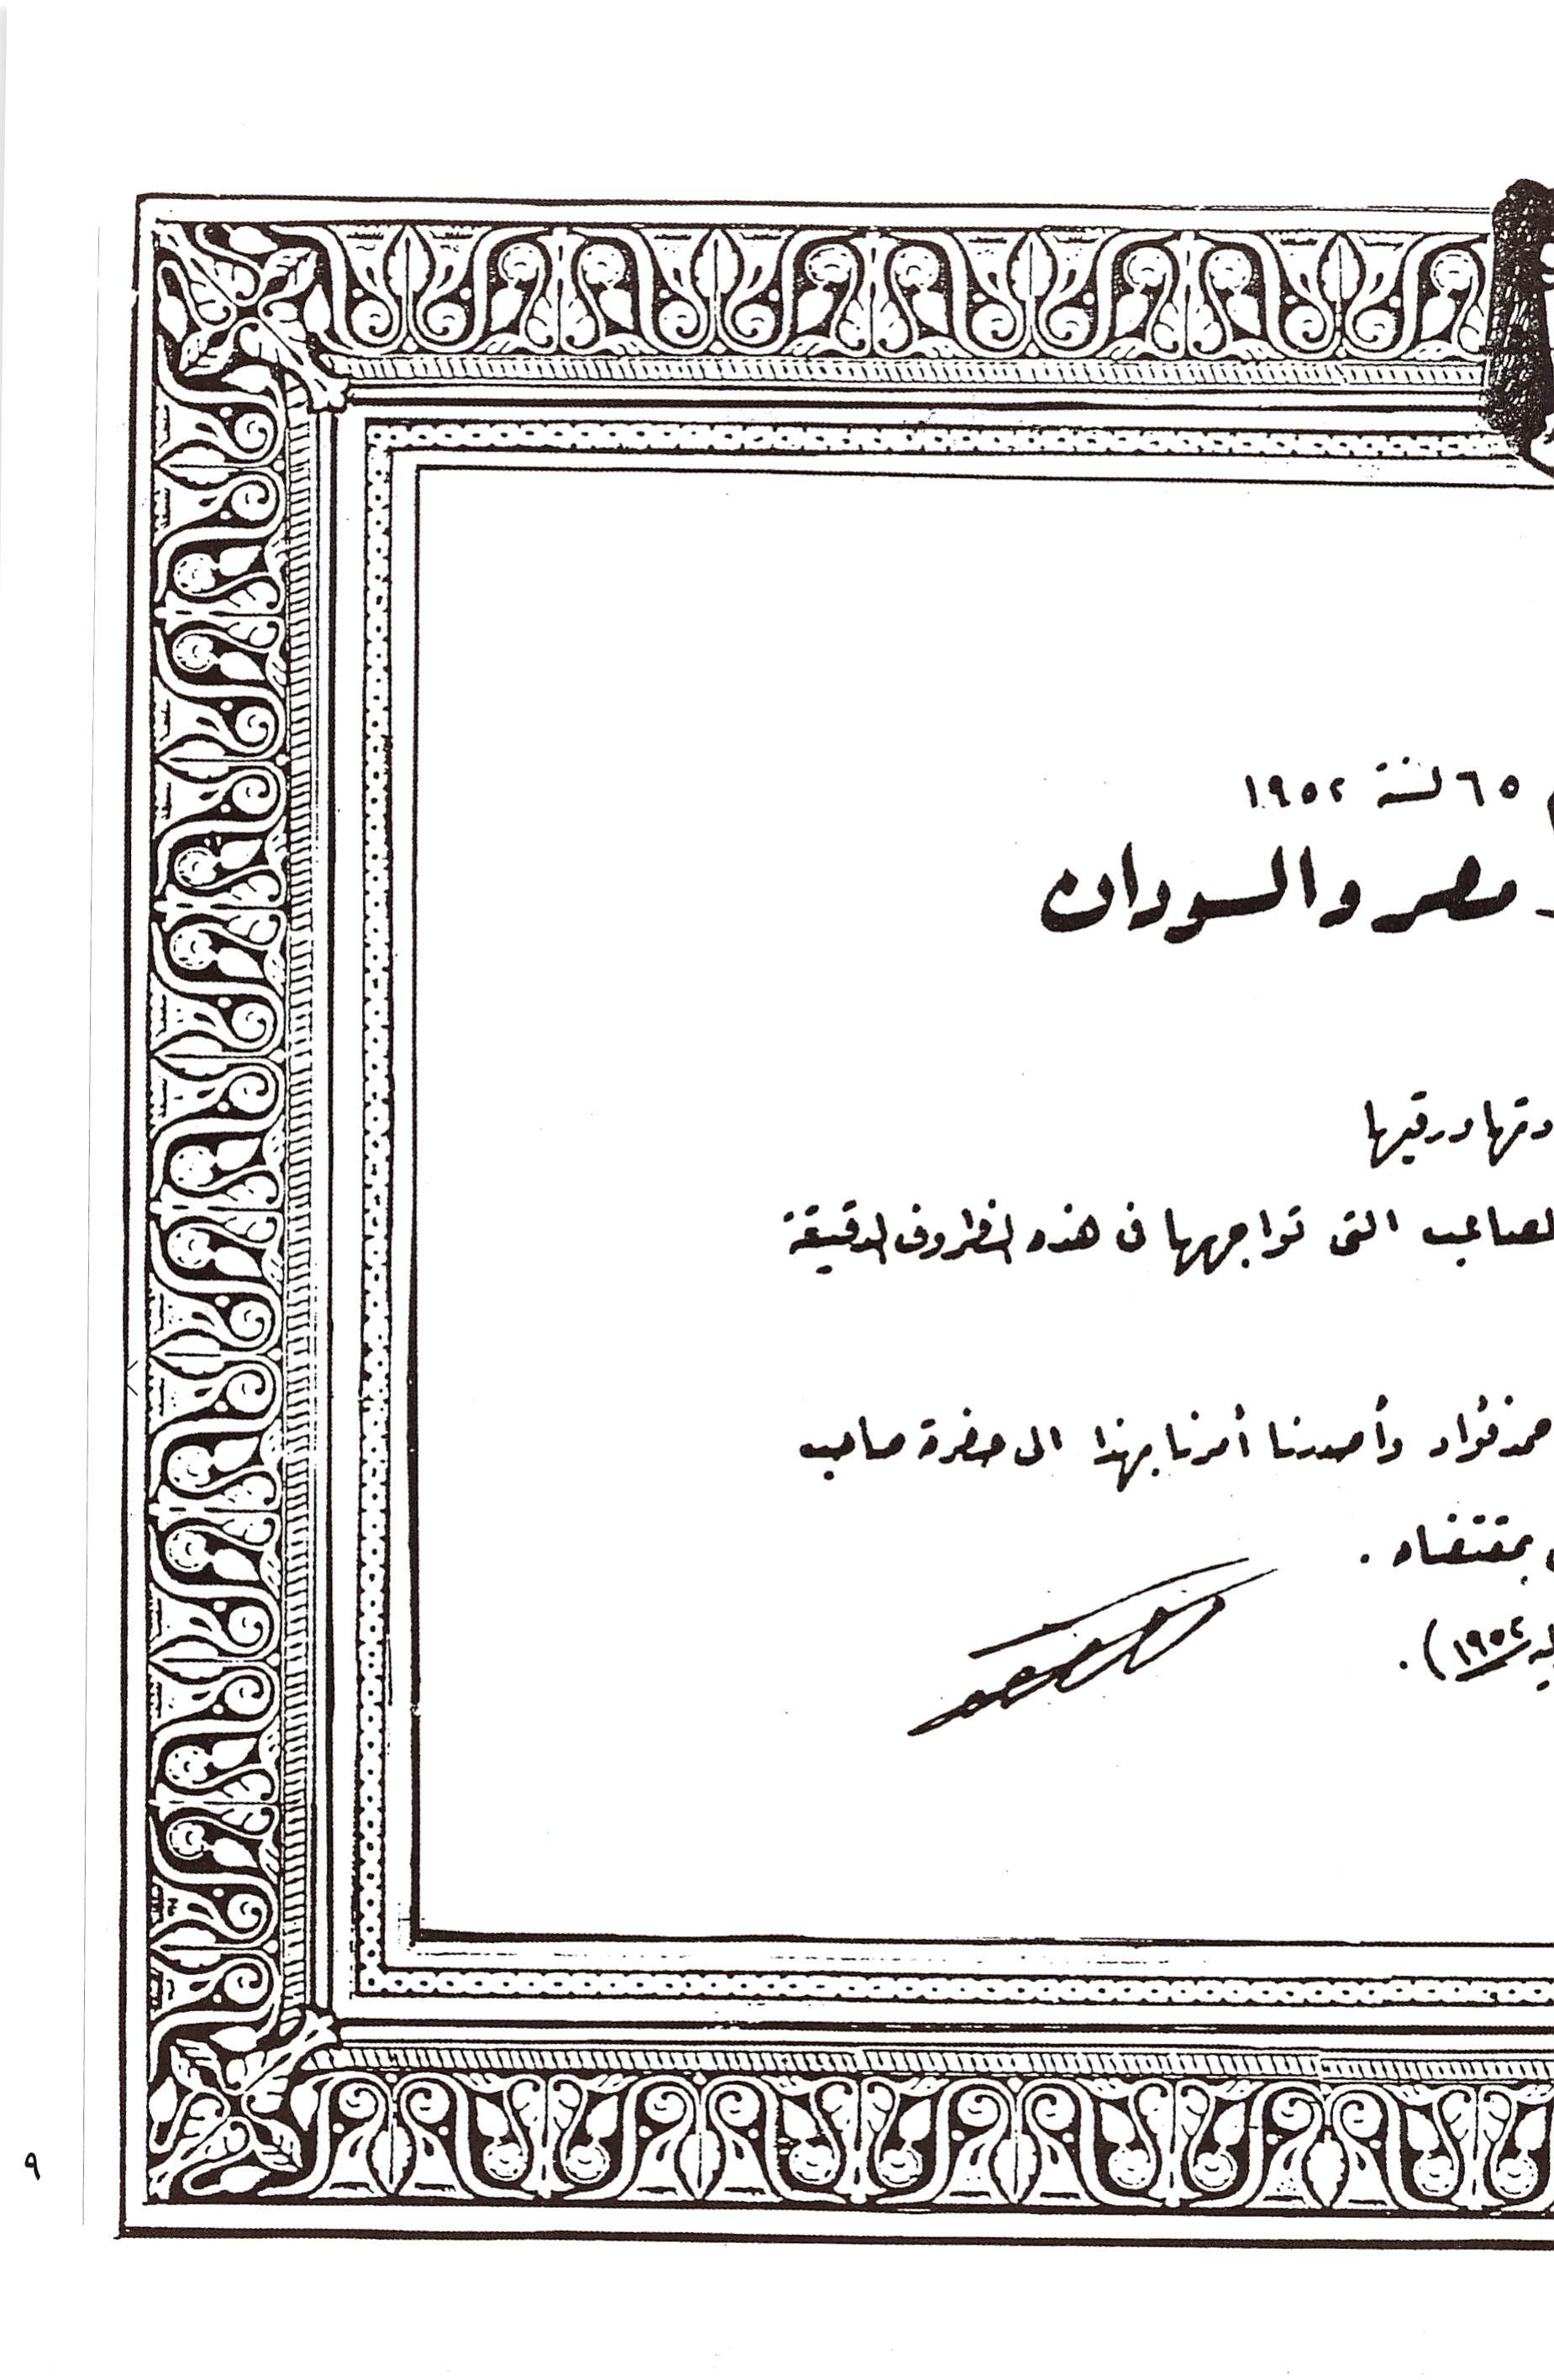 ٦٥ لسنة ١٩٥٢
مصر والسودان
ورقيها
التى تواجهها فى هذه الظروف الدقيقة
فؤاد وأصدرنا أمرنا بهذا الى حضرة صاحب
بمقتضاه .
١٩٥٢) .
٩